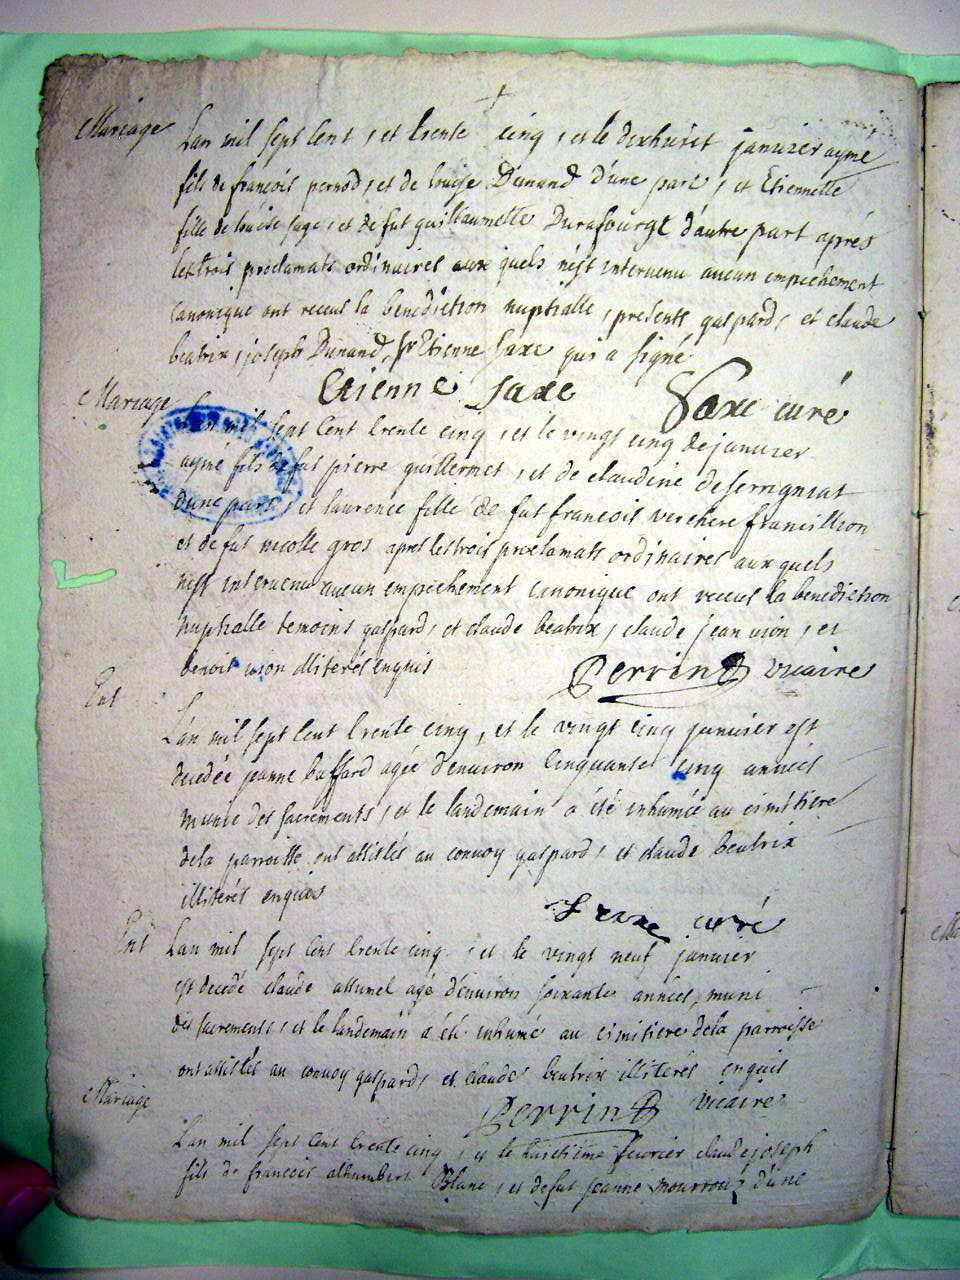 Mariage
Lan mil sept cent, et trente cinq, et le dixhuist janvier ayme
fils de françois pernod, et de Dunand d'une part, et Etiennette
fille de sage, et de fut guillaumette Durafourgt d'autre part aprés
les trois proclamats ordinaires aux quels n'est intervenu aucun empechement
canonique ont receus la benediction nuptialle, presents gaspard, et claude
beatrix, joseph Dunand, Sr Etienne saxe qui a signé
Etienne saxe Saxe curé
Mariage
Lan mil sept cent trente cinq, et le vingt cinq de janvier
ayme fils de fut pierre guillermet, et de claudine deserrigniat
dune part, et laurence fille de fut francois verchere francillion
et de fut nicolle gros apres les trois proclamats ordinaires aux quels
nest intervenu aucun empechement canonique ont receus la benediction
nuptialle temoins gaspard, et claude beatrix, claude jean vion, et
benoit vion illiterés enquis
Perrin vicaire
Ent
Lan mil sept cent trente cinq, et le vingt cinq janvier est
decedée jeanne buffard agée d'environ cinquante cinq années
munie des sacrements, et le landemain a été inhumée au cimitiere
dela parroisse ont assistés au convoy gaspard, et claude beatrix
illiterés enquis
Saxe curé
Ent
Lan mil sept cent trente cinq, et le vingt neuf janvier
est decedé claude agé d'environ soixante années, muni
des sacrements, et le landemain a été inhumé au cimitiere dela parroisse
ont assistés au convoy gaspard, et claude beatrix illiterés enquis
Perrin vicaire
Mariage
Lan mil sept cent trente cinq, et le huictième fevrier claude joseph
fils de francois alhumbert Blanc, et de fut jeanne d'une